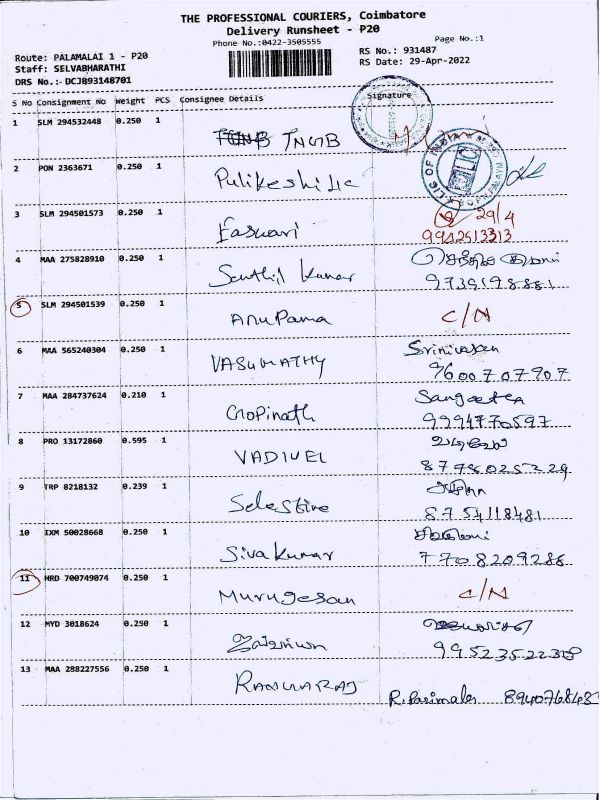 THE PROFESSIONAL COURIERS, Coimbatore
Delivery Runsheet - P20
Phone No.:0422-3505555
Page No.:1
Route: PALAMALAI 1 - P20
RS No.: 931487
Staff: SELVABHARATHI
RS Date: 29-Apr-2022
DRS No.:- DCJB93148701
S No Consignment No Weight PCS Consignee Details Signature
1 SLM 294532448 0.250 1
TNGB
2 PON 2363671 0.250 1
LIC OF INDIA
Pulikeshi
3 SLM 294501573 0.250 1
29/4
Easwari
9942513313
4 MAA 275828910 0.250 1
Senthil Kumar
9739198881
5 SLM 294501539 0.250 1
Anupama C/N
6 MAA 565240304 0.250 1
Srinivasan
VASUMATHY
9600707907
7 MAA 284737624 0.210 1
Sangeetha
Gopinath
9994770597
8 PRO 13172860 0.595 1
வடிவேல்
VADIVEL
8778025229
9 TRP 8218132 0.239 1
Selestine
8754118481
10 IXM 50028668 0.250 1
Sivakumar
7708209286
11 HRD 700749074 0.250 1
Murugesan C/N
12 MYD 3018624 0.250 1
13 MAA 288227556 0.250 1
RANGARAJ
R. Parimala